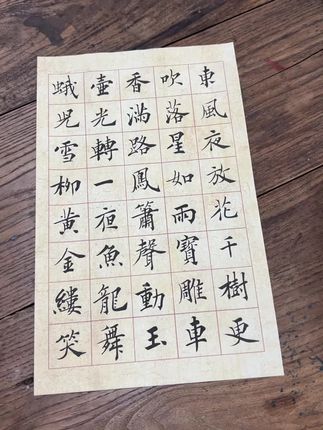 東風夜放花千樹更
吹落星如雨寶雕車
香滿路鳳簫聲動玉
壺光轉一亱魚龍舞
蛾兒雪柳黃金縷笑